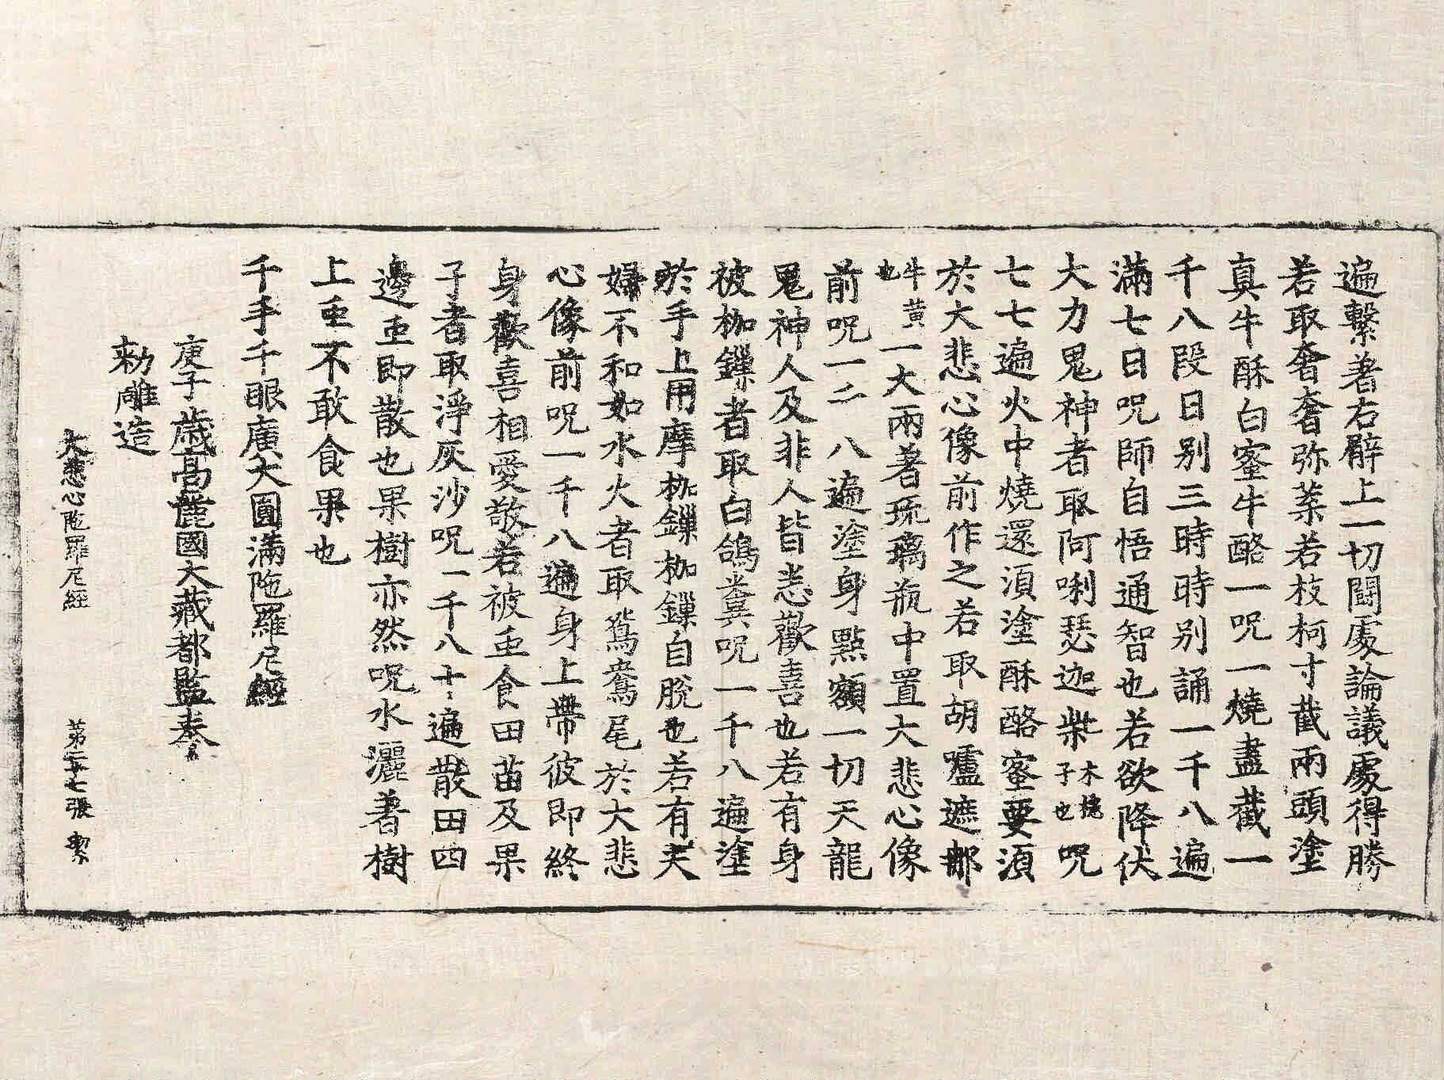 遍繫著右臂上一切鬪處論議處得勝
若取奢奢弥葉若枝柯寸截兩頭塗
真牛酥白蜜牛酪一呪一燒盡截一
千八段日別三時時別誦一千八遍
滿七日呪師自悟通智也若欲降伏
大力鬼神者取阿唎瑟迦柴木槵子也呪
七七遍火中燒還湏塗酥酪蜜要湏
於大悲心像前作之若取胡嚧遮那
牛黃也一大兩著琉璃瓶中置大悲心像
前呪一千八遍塗身點額一切天龍
鬼神人及非人皆悉歡喜也若有身
被枷鏁者取白鴿糞呪一千八遍塗
於手上用摩枷鏁枷鏁自脫也若有夫
婦不和如水火者取鴛鴦尾於大悲
心像前呪一千八遍身上帶彼即終
身歡喜相愛敬若被䖝食田苗及果
子者取淨灰沙呪一千八十遍散田四
邊䖝即散也果樹亦然呪水灑著樹
上䖝不敢食果也
千手千眼廣大圓滿陁羅尼經
庚子歲高麗國大藏都監奉
勑雕造
大悲心陁羅尼經 第二十七張